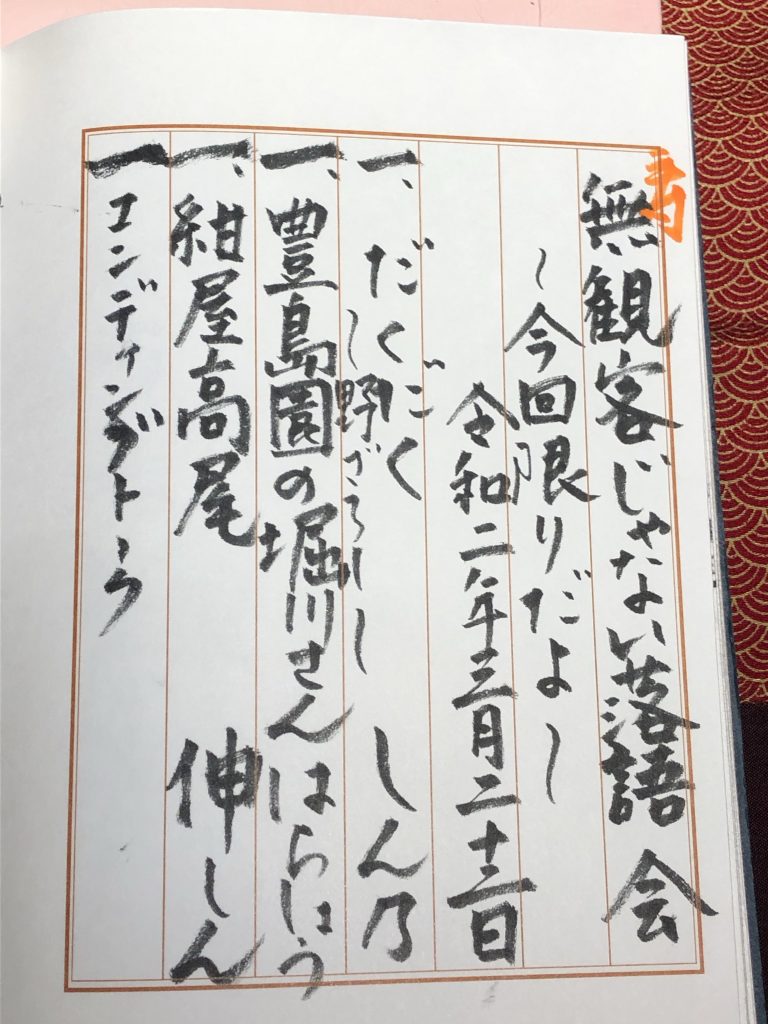 無観客じゃない落語会
〜今回限りだよ〜
令和二年三月二十三日
一、だくだく しん乃
〜野ざらし〜
一、豊島園の堀川さん はらしょう
一、紺屋高尾 伸しん
一 エンディングトーク